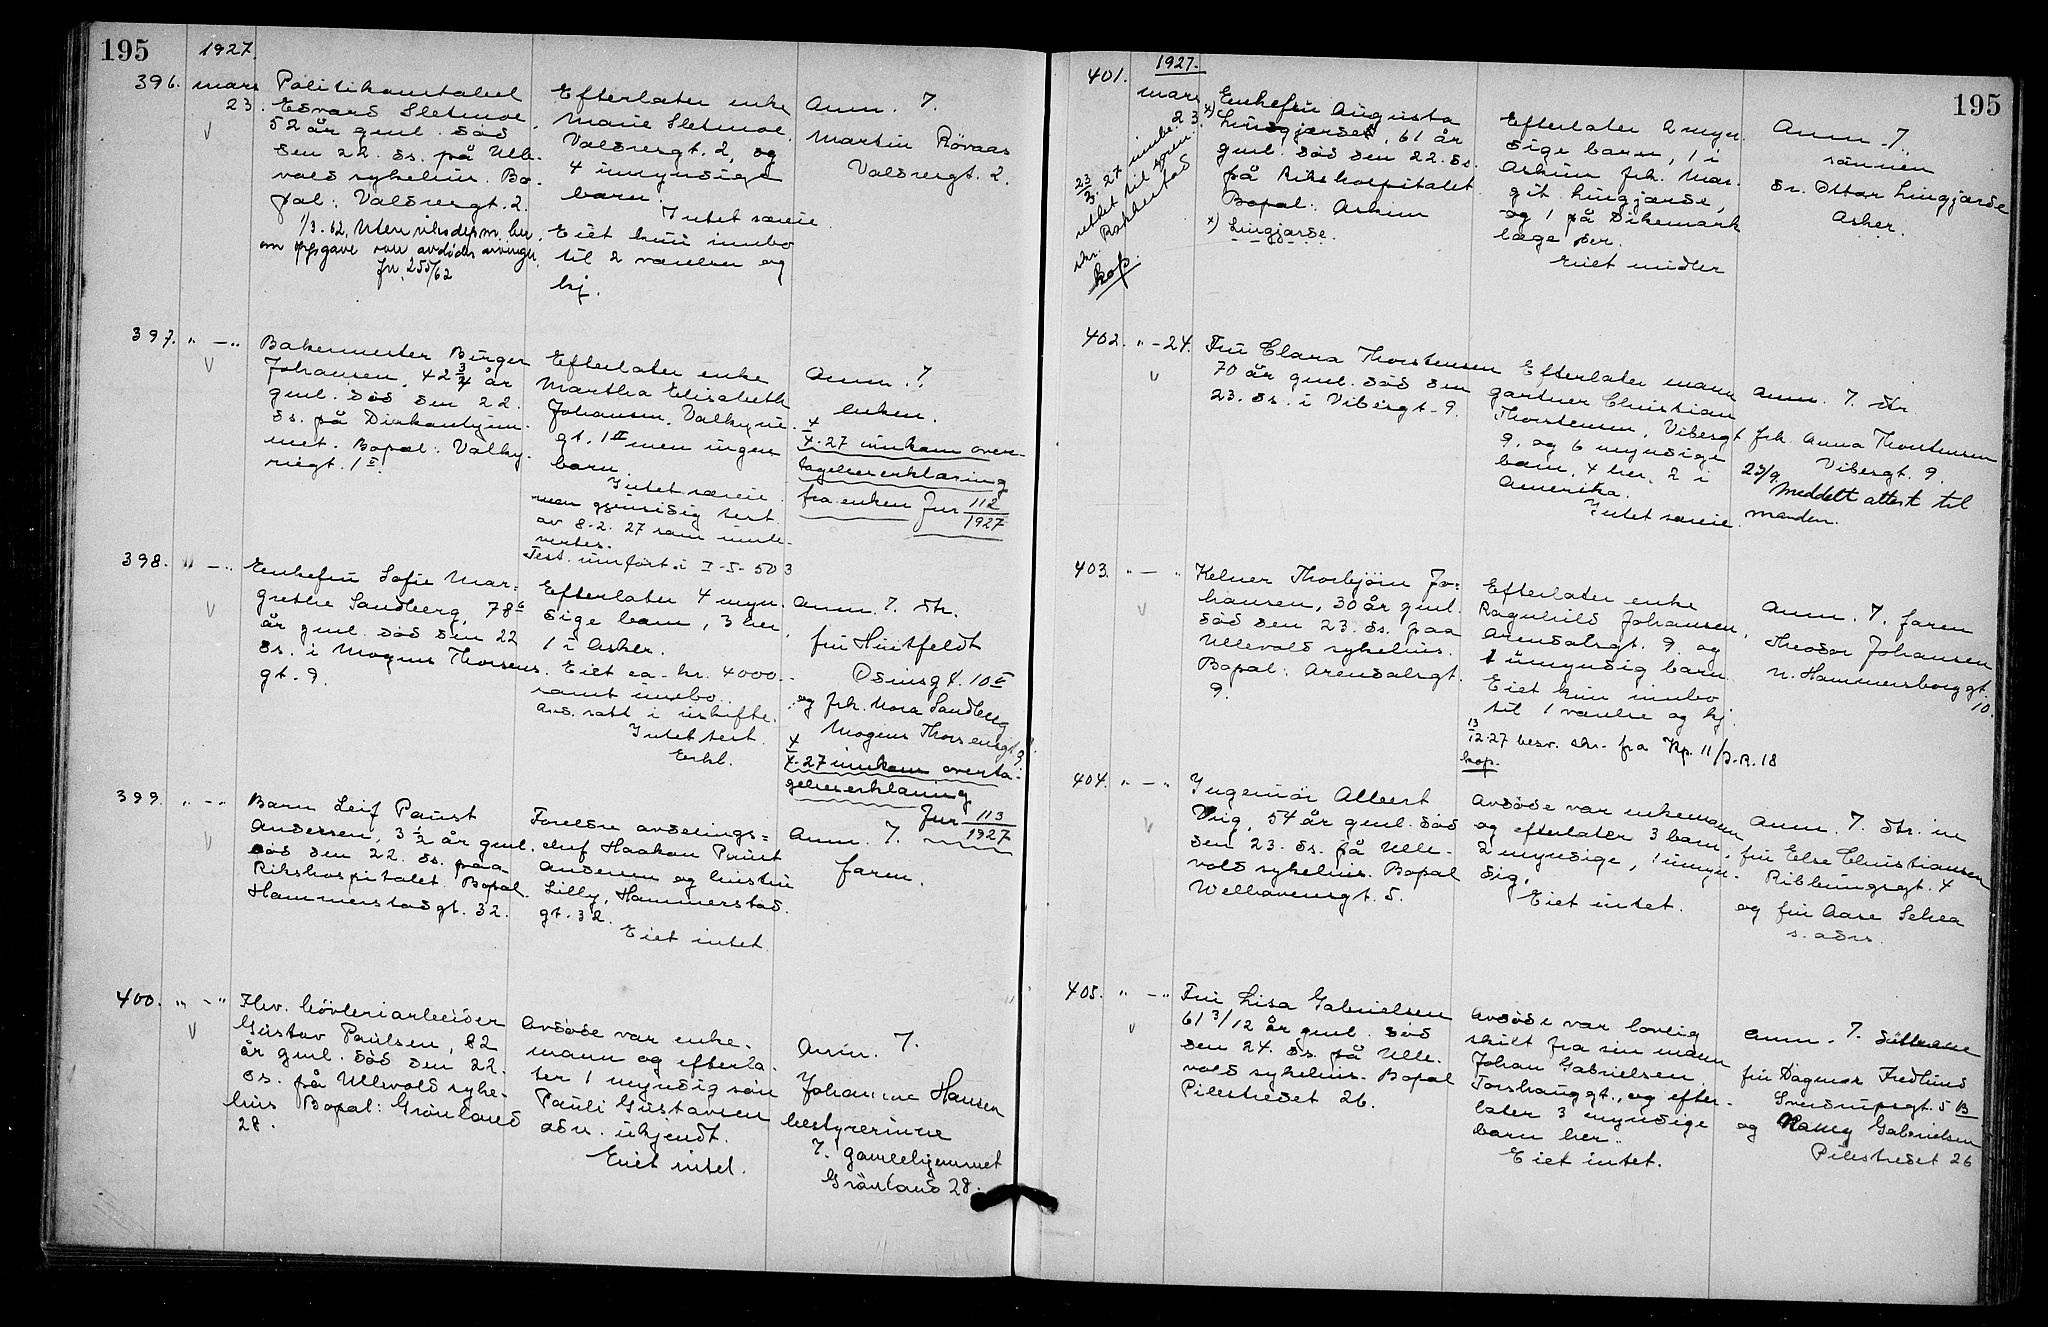 195
1927.
396.
mars
23.
Politikonstabel
Edvard Sletmoe,
52 år gml. død
den 22. ds. på Ulle-
vold sykehus. Bo-
pæl: Valdresgt. 2.
1/3.62,
om oppgave over avdødes arvinger.
Jnr. 255/62
Efterlater enke
Marie Sletmoe,
Valdresgt. 2, og
4 umyndige
barn.
Intet særeie.
Eiet kun innbo
til 2 værelser og
kj.
Anm. 7.
Martin Røvaas
Valdresgt. 2.
397. " — "
Bakermester Birger
Johansen, 42 3/4 år
gml. død den 22.
ds. på Diakonhjem-
met. Bopæl: Valky-
riegt. 1 II.
Efterlater enke
Martha Elisabeth
Johansen, Valkyrie-
gt. 1 II men ingen
barn.
Intet særeie.
men gjensidig test.
av 8.2.27 som innle-
vertes.
Test. innført i I-5-503
Anm. 7.
enken.
4/4.27 innkom over-
tagelseserklæring
fra enken Jnr 112/1927
398. " — "
Enkefru Sofie Mar-
grethe Sandberg, 78
år gml. død den 22
ds. i Mogens Thorsens
gt. 9.
Efterlater 4 myn-
dige barn, 3 her,
1 i Asker.
Eiet ca. kr. 4000.-
samt innbo.
Avd. satt i uskifte.
Intet test.
Erkl.
Anm. 7. dtr.
fru Huitfeldt
Odinsgt. 10 II
og frk. Nora Sandberg
Mogens Thorsensgt 9.
4/4.27 innkom overta-
gelseserklæring
Jnr 113/1927
399. " — "
Barn Leif Paust
Andersen, 3 1/2 år gml.
død den 22. ds. paa
Rikshospitalet. Bopæl
Hammerstadgt. 32.
Foreldre avdelings=
chef Haakon Paust
Andersen og hustru
Lilly, Hammerstad-
gt. 32.
Eiet intet.
Anm. 7.
faren.
400. " — "
Fhv. høvleriarbeider
Gustav Paulsen, 82
år gml. død den 22.
ds. på Ullevold syke-
hus Bopæl: Grønland
28.
Avdøde var enke-
mann og efterla-
ter 1 myndig søn
Pauli Gustavsen
adr. ukjendt.
Eiet intet.
Anm. 7.
Johanne Hansen
bestyrerinne
7. gamlehjemmet
Grønland 28.
195
1927.
401.
mars
23.
23/3.27 innbe-
rettet til
skr. Rakkestad
kop.
Enkefru Augusta
x) Lingjærde, 61 år
gml. død den 22. ds.
på Rikshospitalet
Bopæl: Askim
x) Lingjærde.
Efterlater 2 myn-
dige barn, 1 i
Askim frk. Mar-
git Lingjærde,
og 1 på Dikemark
læge der.
Eiet midler
Anm. 7.
sønnen
dr. Ottar Lingjærde
Asker.
402. " - 24.
Fru Clara Thorstensen
70 år gml. død den
23. ds. i Vibesgt. 9.
Efterlater mann
gartner Christian
Thorstensen, Vibesgt
9. og 6 myndige
barn, 4 her, 2 i
Amerika.
Intet særeie.
Anm. 7. dtr
frk. Anna Thorstensen
Vibesgt. 9.
23/9. Meddelt attest til
manden.
403. " — "
Kelner Thorbjørn Jo=
hansen, 30 år gml.
død den 23. ds. paa
Ullevold sykehus.
Bopæl: Arendalsgt.
9.
Efterlater enke
Ragnhild Johansen,
Arendalsgt. 9. og
1 umyndig barn.
Eiet kun innbo
til 1 værelse og kj.
13/12.27 besv. skr. fra Rp. 11/J.R. 18
kop.
Anm. 7. faren
Theodor Johansen
n. Hammersborggt.
10.
404. " — "
Ingeniør Albert
Viig, 54 år gml. død
den 23. ds. på Ulle-
vold sykehus. Bopæl
Welhavensgt. 5.
Avdøde var enkemann
og efterlater 3 barn,
2 myndige, 1 umyn-
dig.
Eiet intet.
Anm. 7. dtr.ne
fru Else Christiansen
Ribbungsgt. 4
og fru Aase
s. adrs.
405. " — "
Fru Lisa Gabrielsen
61 3/12 år gml. død
den 24. ds. på Ulle-
vold sykehus. Bopæl
Pilestredet 26.
Avdøde var lovlig
skilt fra sin mann
Johan Gabrielsen,
Torshauggt., og efter-
later 3 myndige
barn her.
Eiet intet.
Anm. 7. døttrene
fru Dagmar Fredlund
Sverdrupsgt. 5 B
og Nancy Gabrielsen
Pilestredet 26